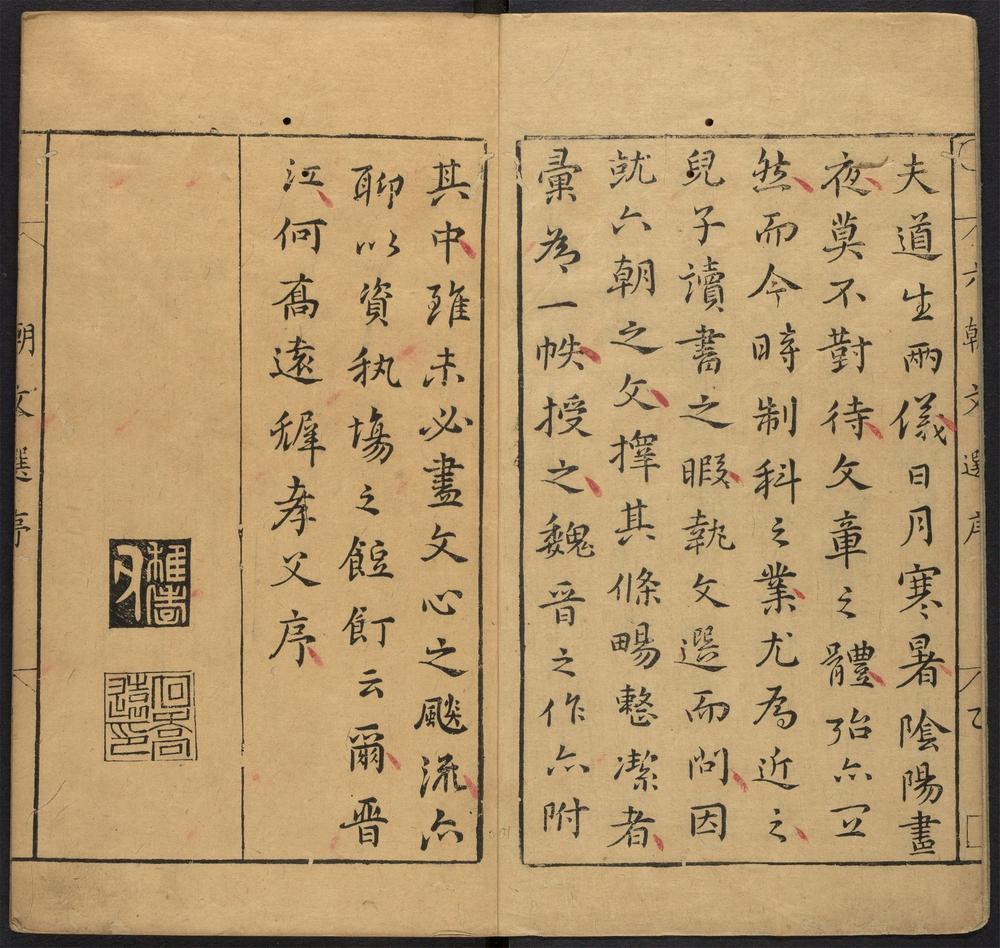 夫道生兩儀日月寒暑陰陽晝
夜莫不對待文章之體殆亦冝
然而今時制科之業尤為近之
兒子讀書之暇執文選而問因
就六朝之文擇其條暢整潔者
彙為一帙授之魏晉之作亦附
其中雖未必盡文心之飈流亦
聊以資執塲之餖飣云爾晉
江何喬遠穉孝父序
六朝文選序
朝文選序
何喬遠印